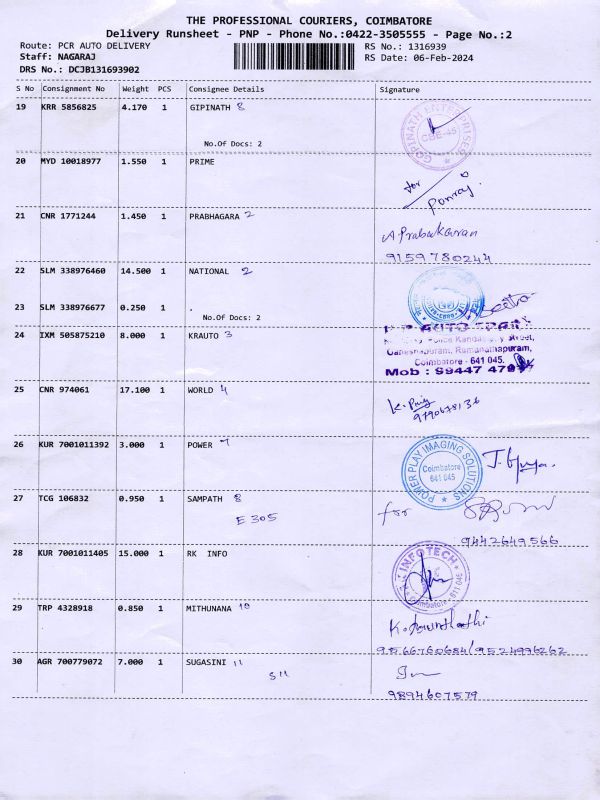 THE PROFESSIONAL COURIERS, COIMBATORE
Delivery Runsheet - PNP - Phone No.:0422-3505555 - Page No.:2
Route: PCR AUTO DELIVERY
RS No.: 1316939
Staff: NAGARAJ
RS Date: 06-Feb-2024
DRS No.: DCJB131693902
S No Consignment No Weight PCS Consignee Details Signature
19 KRR 5856825 4.170 1 GIPINATH 8
GOPINATH ENTERPRISES
CBE-45
No.Of Docs: 2
20 MYD 10018977 1.550 1 PRIME
for
Ponraj.
21 CNR 1771244 1.450 1 PRABHAGARA 2
A Prabakaran
9159780244
22 SLM 338976460 14.500 1 NATIONAL 2
23 SLM 338976677 0.250 1 .
No.Of Docs: 2
24 IXM 505875210 8.000 1 KRAUTO 3
Street,
Ganeshapuram, Ramanathapuram,
Coimbatore - 641 045.
Mob : 99447
25 CNR 974061 17.100 1 WORLD 4
26 KUR 7001011392 3.000 1 POWER 7
POWER PLAY IMAGING SOLUTIONS
Coimbatore
641 045
27 TCG 106832 0.950 1 SAMPATH 8
E 305
for
9442649566
28 KUR 7001011405 15.000 1 RK INFO
INFOTECH
Coimbatore - 641 045
29 TRP 4328918 0.850 1 MITHUNANA 10
9566760684/9524996262
30 AGR 700779072 7.000 1 SUGASINI 11
S11
9894607579